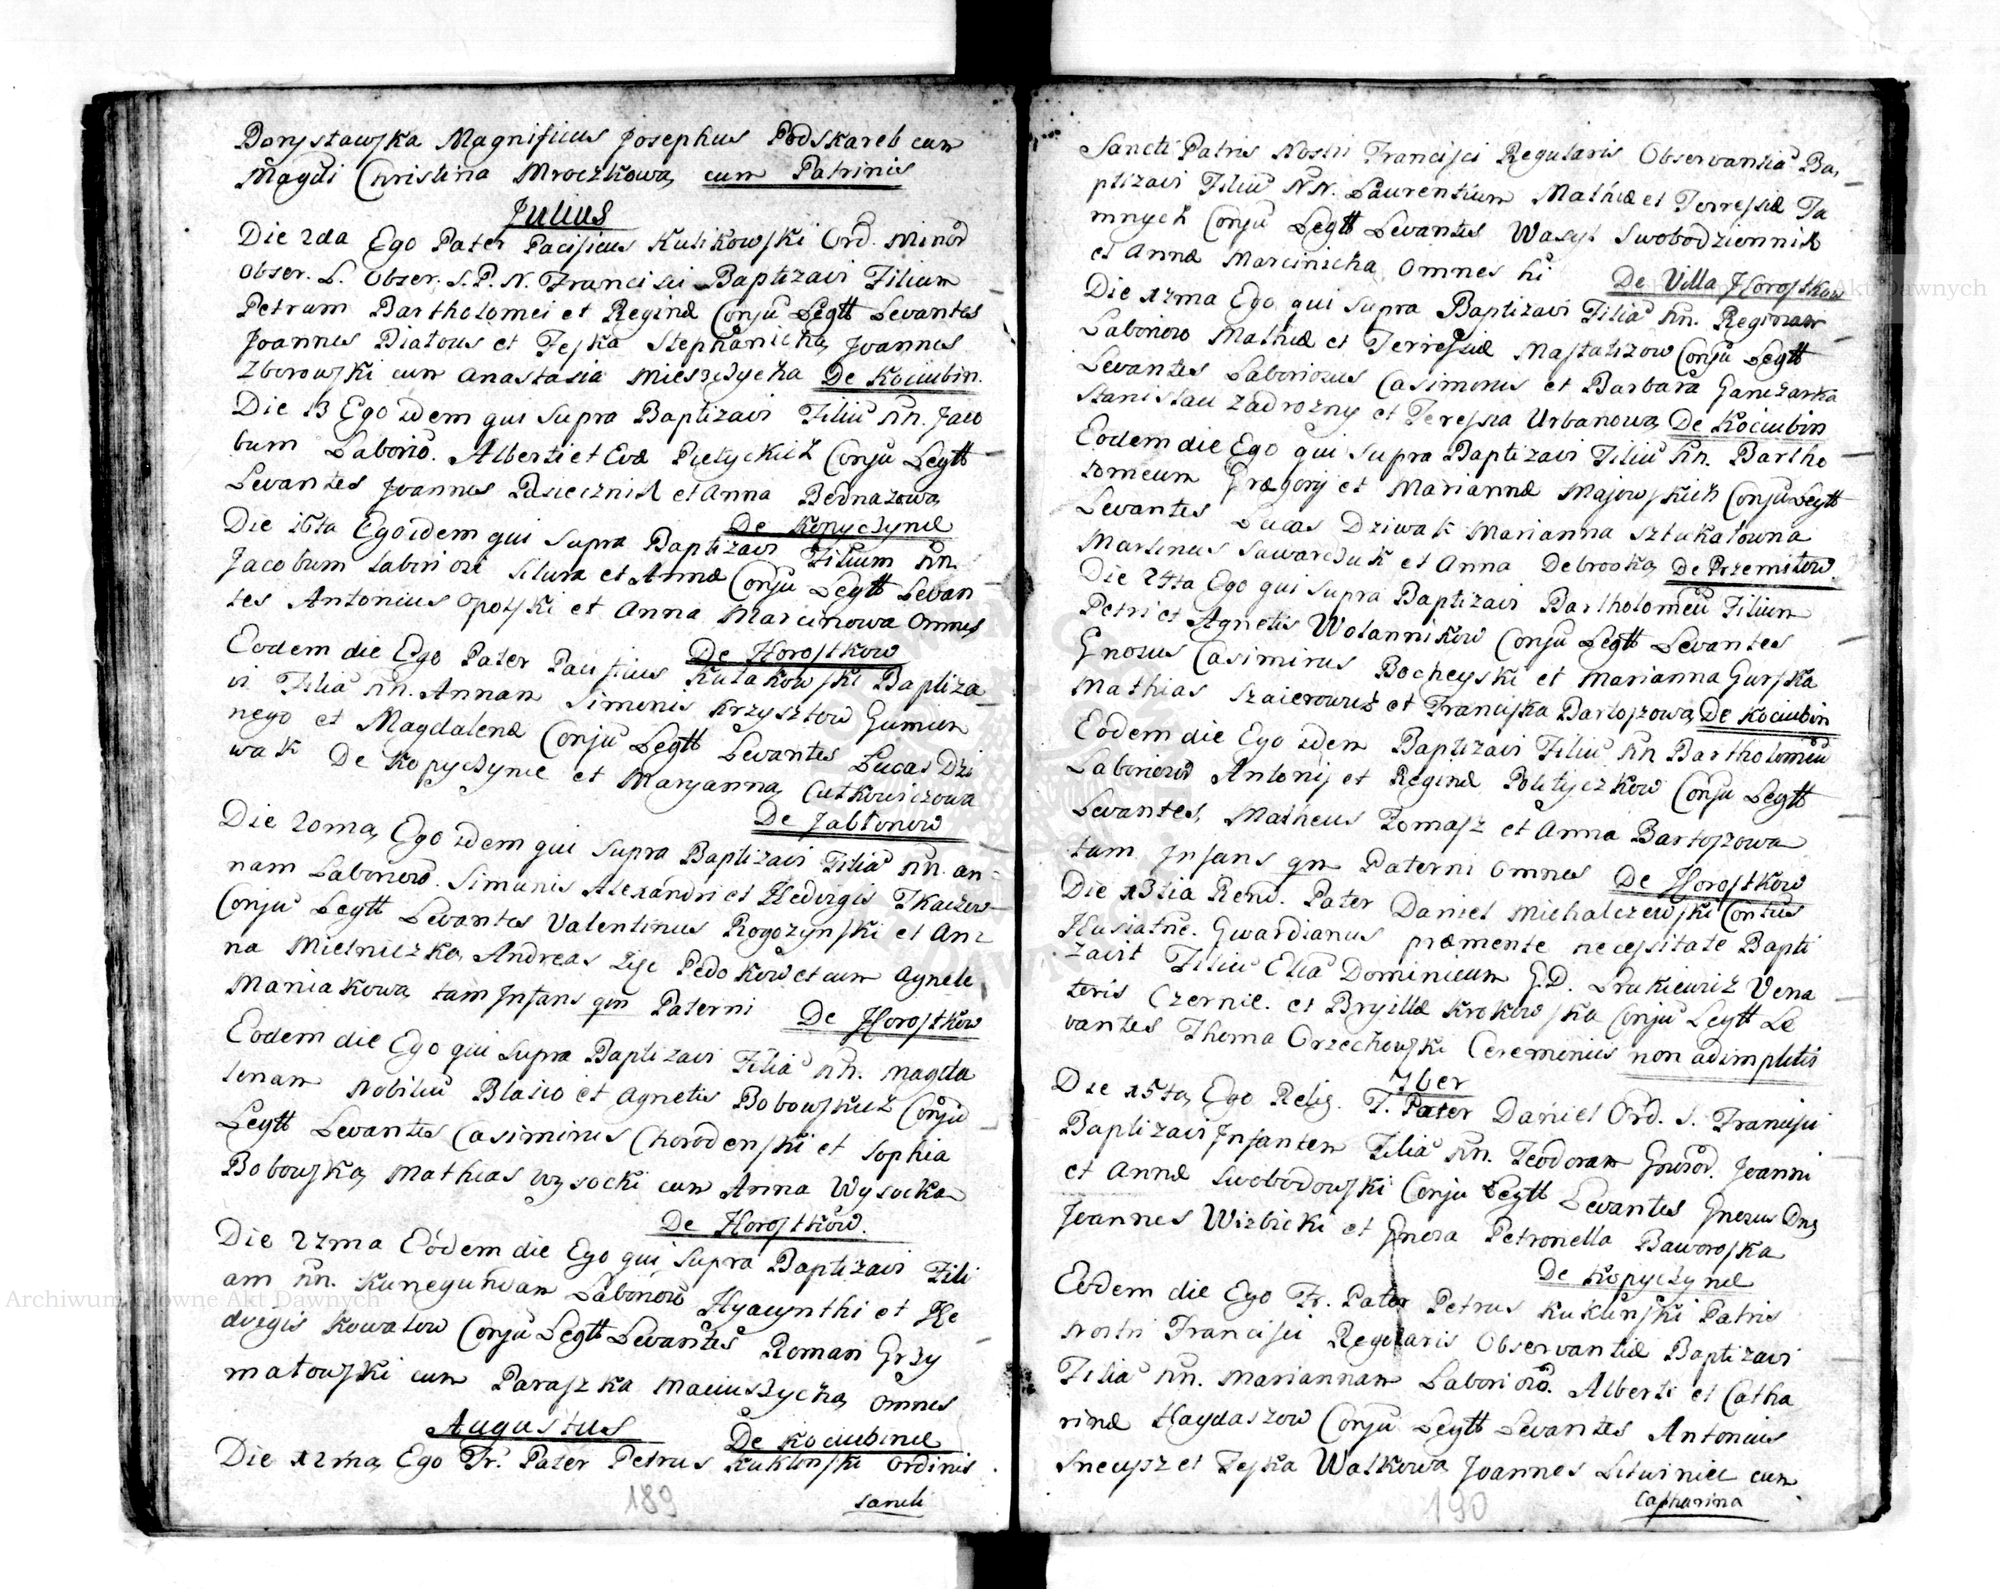 Borysławska Magnificus Josephus Podskareb cum
Magdi Christina Mroczkowa, cum Patrinis
Julius
Die 2da Ego Pater Pacificus Kulikowski Ord. Minor
Obser. L. Obser. S. P. N. Francisci Baptizavi Filium
Petrum Bartholomei et Reginæ Conju Legtt Levantes
Joannes Diatous et Feska Stephanicha, Joannes
Zborowski cum Anastasia Mieszczycha De Kociubin.
Die 13 Ego idem qui Supra Baptizavi Filiu nn. Jaco
bum Laborio. Alberti et Evæ Pietyckich Conju Legtt
Levantes Joannes Pasiecznik et Anna Bednazowa
De Kopyczynie
Die 16ta Ego idem qui Supra Baptizavi Filium nn.
Jacobum Laboriosi Silura et Annæ Conju Legtt Levan
tes Antonius Opolski et Anna Marcinowa Omnes
De Horostkow
Eodem die Ego Pater Pacificus Kulakowski Baptiza
vi Filia nn. Annam Simonis Krzysztow Gumien
nego et Magdalenæ Conju Legtt Levantes Lucas Dzi
wak De Kopyczynie et Maryanna, Cutkowiczowa
De Jabłonow
Die 20ma, Ego idem qui Supra Baptizavi Filia nn. An-
nam Laborioso. Simonis Alexandri et Hedvigis Tkaczow
Conju Legtt Levantes Valentinus Rogozynski et An-
na Mielniczka, Andreas Zyc Pedokow et cum Agnete
Maniakowa, tam Infans qm Paterni De Horostkow
Eodem die Ego qui Supra Baptizavi Filia nn. Magda
lenam Nobiliu Blasio et Agnetis Bobowskich Conju
Legtt Levantes Casimirus Chorodenski et Sophia
Bobowska, Mathias Wysocki cum Anna Wysocka
De Horostkow.
Die 27ma Eodem die Ego qui Supra Baptizavi Fili
am nn. Kunegundam Laborioso Hyacynthi et He
dvegis Kowalow Conju Legtt Levantes Roman Grzy
matowski cum Paraszka Maciuszycha, Omnes
De Kociubinie
Augustus
Die 12ma, Ego Fr. Pater Petrus Kuklinski Ordinis
Sancti
189
Sancti Patris Nostri Francisci Regularis Observantia Ba,
ptizavi Filiu NN. Laurentium Mathiæ et Terresiæ Ta
mnych Conju Legtt Levantes Wasyl Swobodziennik
et Annæ Marcinicha, Omnes hi De Villa Horostkow
Die 17ma Ego qui Supra Baptizavi Filia nn. Reginam
Laborioso Mathiæ et Terresiæ Mastalizow Conju Legtt
Levantes Laboriosus Casimirus et Barbara Gancżarka
Stanislau Zadrozny et Teressia Urbanowa, De Kociubin
Eodem die Ego qui Supra Baptizavi Filiu nn. Bartho
lomeum Grægorij et Mariannæ Majowskich Conju Legtt
Levantes Lucas Dziwak Marianna Sztukatowna
Martinus Sawarczuk et Anna Debrooka, De Przemiłow
Die 24ta Ego qui Supra Baptizavi Bartholomeu Filium
Petri et Agnetis Wolannikow Conju Legtt Levantes
Gnosus Casimirus Bocheyski et Marianna Gurska
Mathias Szaierowicz et Franciska Bartoszowa, De Kociubin
Eodem die Ego idem Baptizavi Filiu nn Bartholomeu
Laborioso Antonij et Reginæ Polityczkow Conju Legtt
Levantes, Matheus Tomasz et Anna Bartoszowa
tam Infans qm Paterni Omnes De Horostkow
Die 13tia Rend. Pater Daniel Michalczewski Contus
Husiatne. Gwardianus præmente necessitate Bapti
zavit Filiu Elia Dominicum G.D. Lrukiewicz Vena
toris Czernie. et Bryillæ Krokowska Conju Legtt Le
vantes Thoma Orzechowski Ceremoniis non adimpletis
7ber
Die 15ta, Ego Relig. F. Pater Daniel Ord. S. Francisci
Baptizavi Infantem Filia nn. Teodoram Gnoror. Joanni
et Annæ Swobodowski Conju Legtt Levantes Gnosus Dns
Joannes Wizbicki et Gnosa Petronella Baworoska
De Kopyczynie
Eodem die Ego Fr. Pater Petrus Kuklinski Patris
Nostri Francisci Regularis Observantiæ Baptizavi
Filia nn. Mariannam Laborioso. Alberti et Catha
rinæ Haydaszow Conju Legtt Levantes Antonius
Sneupsz et Feska Walkowa, Joannes Litwiniec cum
Catharina
190
Archiwum Główne Akt Dawnych